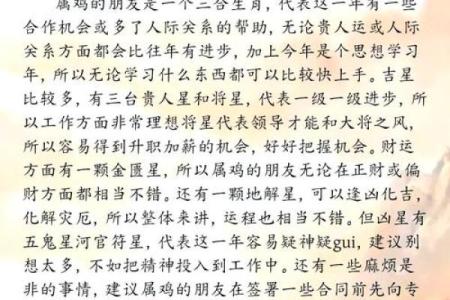 属鸡的朋友是一个三合生肖，代表这一年有一些
合作机会或多了人际关系的帮助，无论贵人运或人际
关系方面都会比往年有进步，加上今年是个思想学习
年，所以无论学习什么东西都可以比较快上手。吉星
比较多，有三台贵人星和将星，代表一级一级进步，所
以工作方面非常理想将星代表领导才能和大将之风，
所以容易得到升职加薪的机会，好好把握机会。财运
方面有一颗金匮星，所以属鸡的朋友无论在正财或偏
财方面都相当不错。还有一颗地解星，可以逢凶化吉，
化解灾厄，所以整体来讲，运程也相当不错。但凶星有
五鬼星河官符星，代表这一年容易疑神疑gui，建议别
想太多，不如把精神投入到工作中。还有一些麻烦是
非的事情，建议属鸡的朋友在签署一些合同前先向专